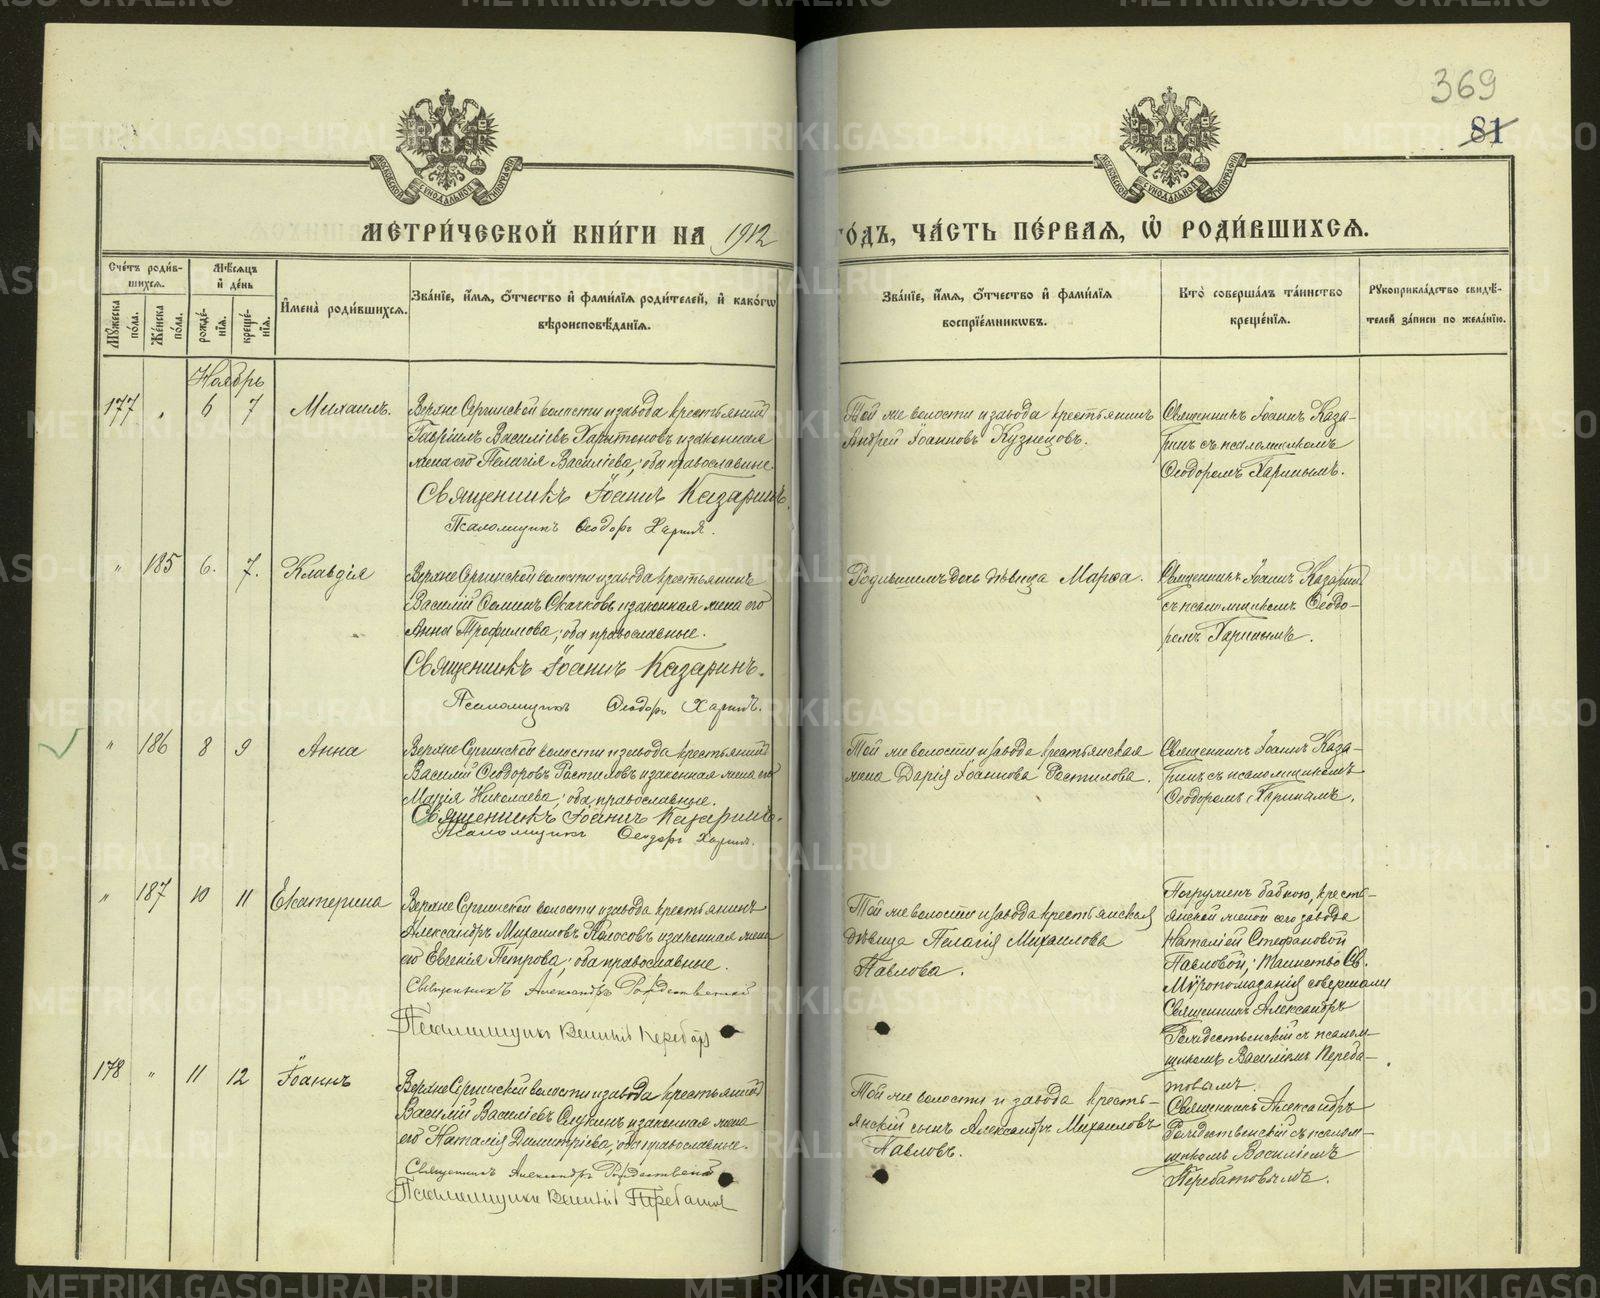 369
81
МЕТРИ́ЧЕСКОЙ КНИ́ГИ НА 1912
ГО́ДЪ, ЧА́СТЬ ПЕ́РВАЯ, Ѡ РОДИ́ВШИХСЯ.
Сче́тъ роди́в-
шихся.
Мѣ́сяцъ
и҆ де́нь
Му́жеска по́ла.
Же́нска по́ла.
рожде́-
нїя.
креще́-
нїя.
И҆мена̀ роди́вшихся.
Зва́нїе, и҆́мя, ѻ҆́тчество и҆ фами́лїя роди́телей, и҆ како́гѡ
вѣроисповѣ́данїя.
Зва́нїе, и҆́мя, ѻ҆́тчество и҆ фами́лїя
воспрїе́мникѡвъ.
Кто̀ соверша́лъ та́инство
креще́нїя.
Рꙋкоприкла́дство свидѣ́-
телей за́писи по жела́нїю.
Ноябрь
177 " 6 7 Михаилъ.
Верхне Сергинской волости и завода крестьянинъ
Гавріилъ Василіевъ Харитоновъ и законная
жена его Пелагія Василіева; оба православные.
Священникъ Іоаннъ Казаринъ.
Псаломщикъ Ѳеодоръ Харинъ.
Той же волости и завода крестьянинъ
Андрей Іоанновъ Кузнецовъ.
Священникъ Іоаннъ Каза-
ринъ съ псаломщикомъ
Ѳеодоромъ Харинымъ.
" 185 6. 7. Клавдія
Верхне Сергинской волости и завода крестьянинъ
Василій Ѳоминъ Скачковъ и законная жена его
Анна Трофимова; оба православные.
Священникъ Іоаннъ Казаринъ.
Псаломщикъ Ѳеодоръ Харинъ.
Родившимъ дочь дѣвица Марѳа.
Священникъ Іоаннъ Казаринъ
съ псаломщикомъ Ѳеодо-
ромъ Харинымъ.
" 186 8 9 Анна
Верхне Сергинской волости и завода крестьянинъ
Василій Ѳеодоровъ Ростиловъ и законная жена его
Марія Николаева; оба православные.
Священникъ Іоаннъ Казаринъ.
Псаломщикъ Ѳеодоръ Харинъ.
Той же волости и завода крестьянская
жена Дарія Іоаннова Ростилова.
Священникъ Іоаннъ Каза-
ринъ съ псаломщикомъ
Ѳеодоромъ Харинымъ.
" 187 10 11 Екатерина
Верхне Сергинской волости и завода крестьянинъ
Александръ Михаиловъ Колосовъ и законная жена
его Евгенія Петрова; оба православные.
Священникъ Александръ Рождественскій
Псаломщикъ Василій Перебатов
Той же волости и завода крестьянская
дѣвица Пелагія Михаилова
Павлова.
Погружен бабкою, кресть-
янской женой сего завода
Наталіей Стефановой
Павловой; таинство Св.
Мѵропомазанія совершали
Священникъ Александръ
Рождественскій съ псалом-
щикомъ Василіемъ Переба-
товымъ.
178 " 11 12 Іоаннъ
Верхне Сергинской волости и завода крестьянинъ
Василій Василіевъ Слукинъ и законная жена
его Наталія Димитріева; оба православные.
Священникъ Александръ Рождественскій
Псаломщикъ Василій Перебатов
Той же волости и завода кресть-
янскій сынъ Александръ Михаиловъ
Павловъ.
Священникъ Александръ
Рождественскій съ псалом-
щикомъ Василіемъ
Перебатовымъ.
METRIKI.GASO-URAL.RU